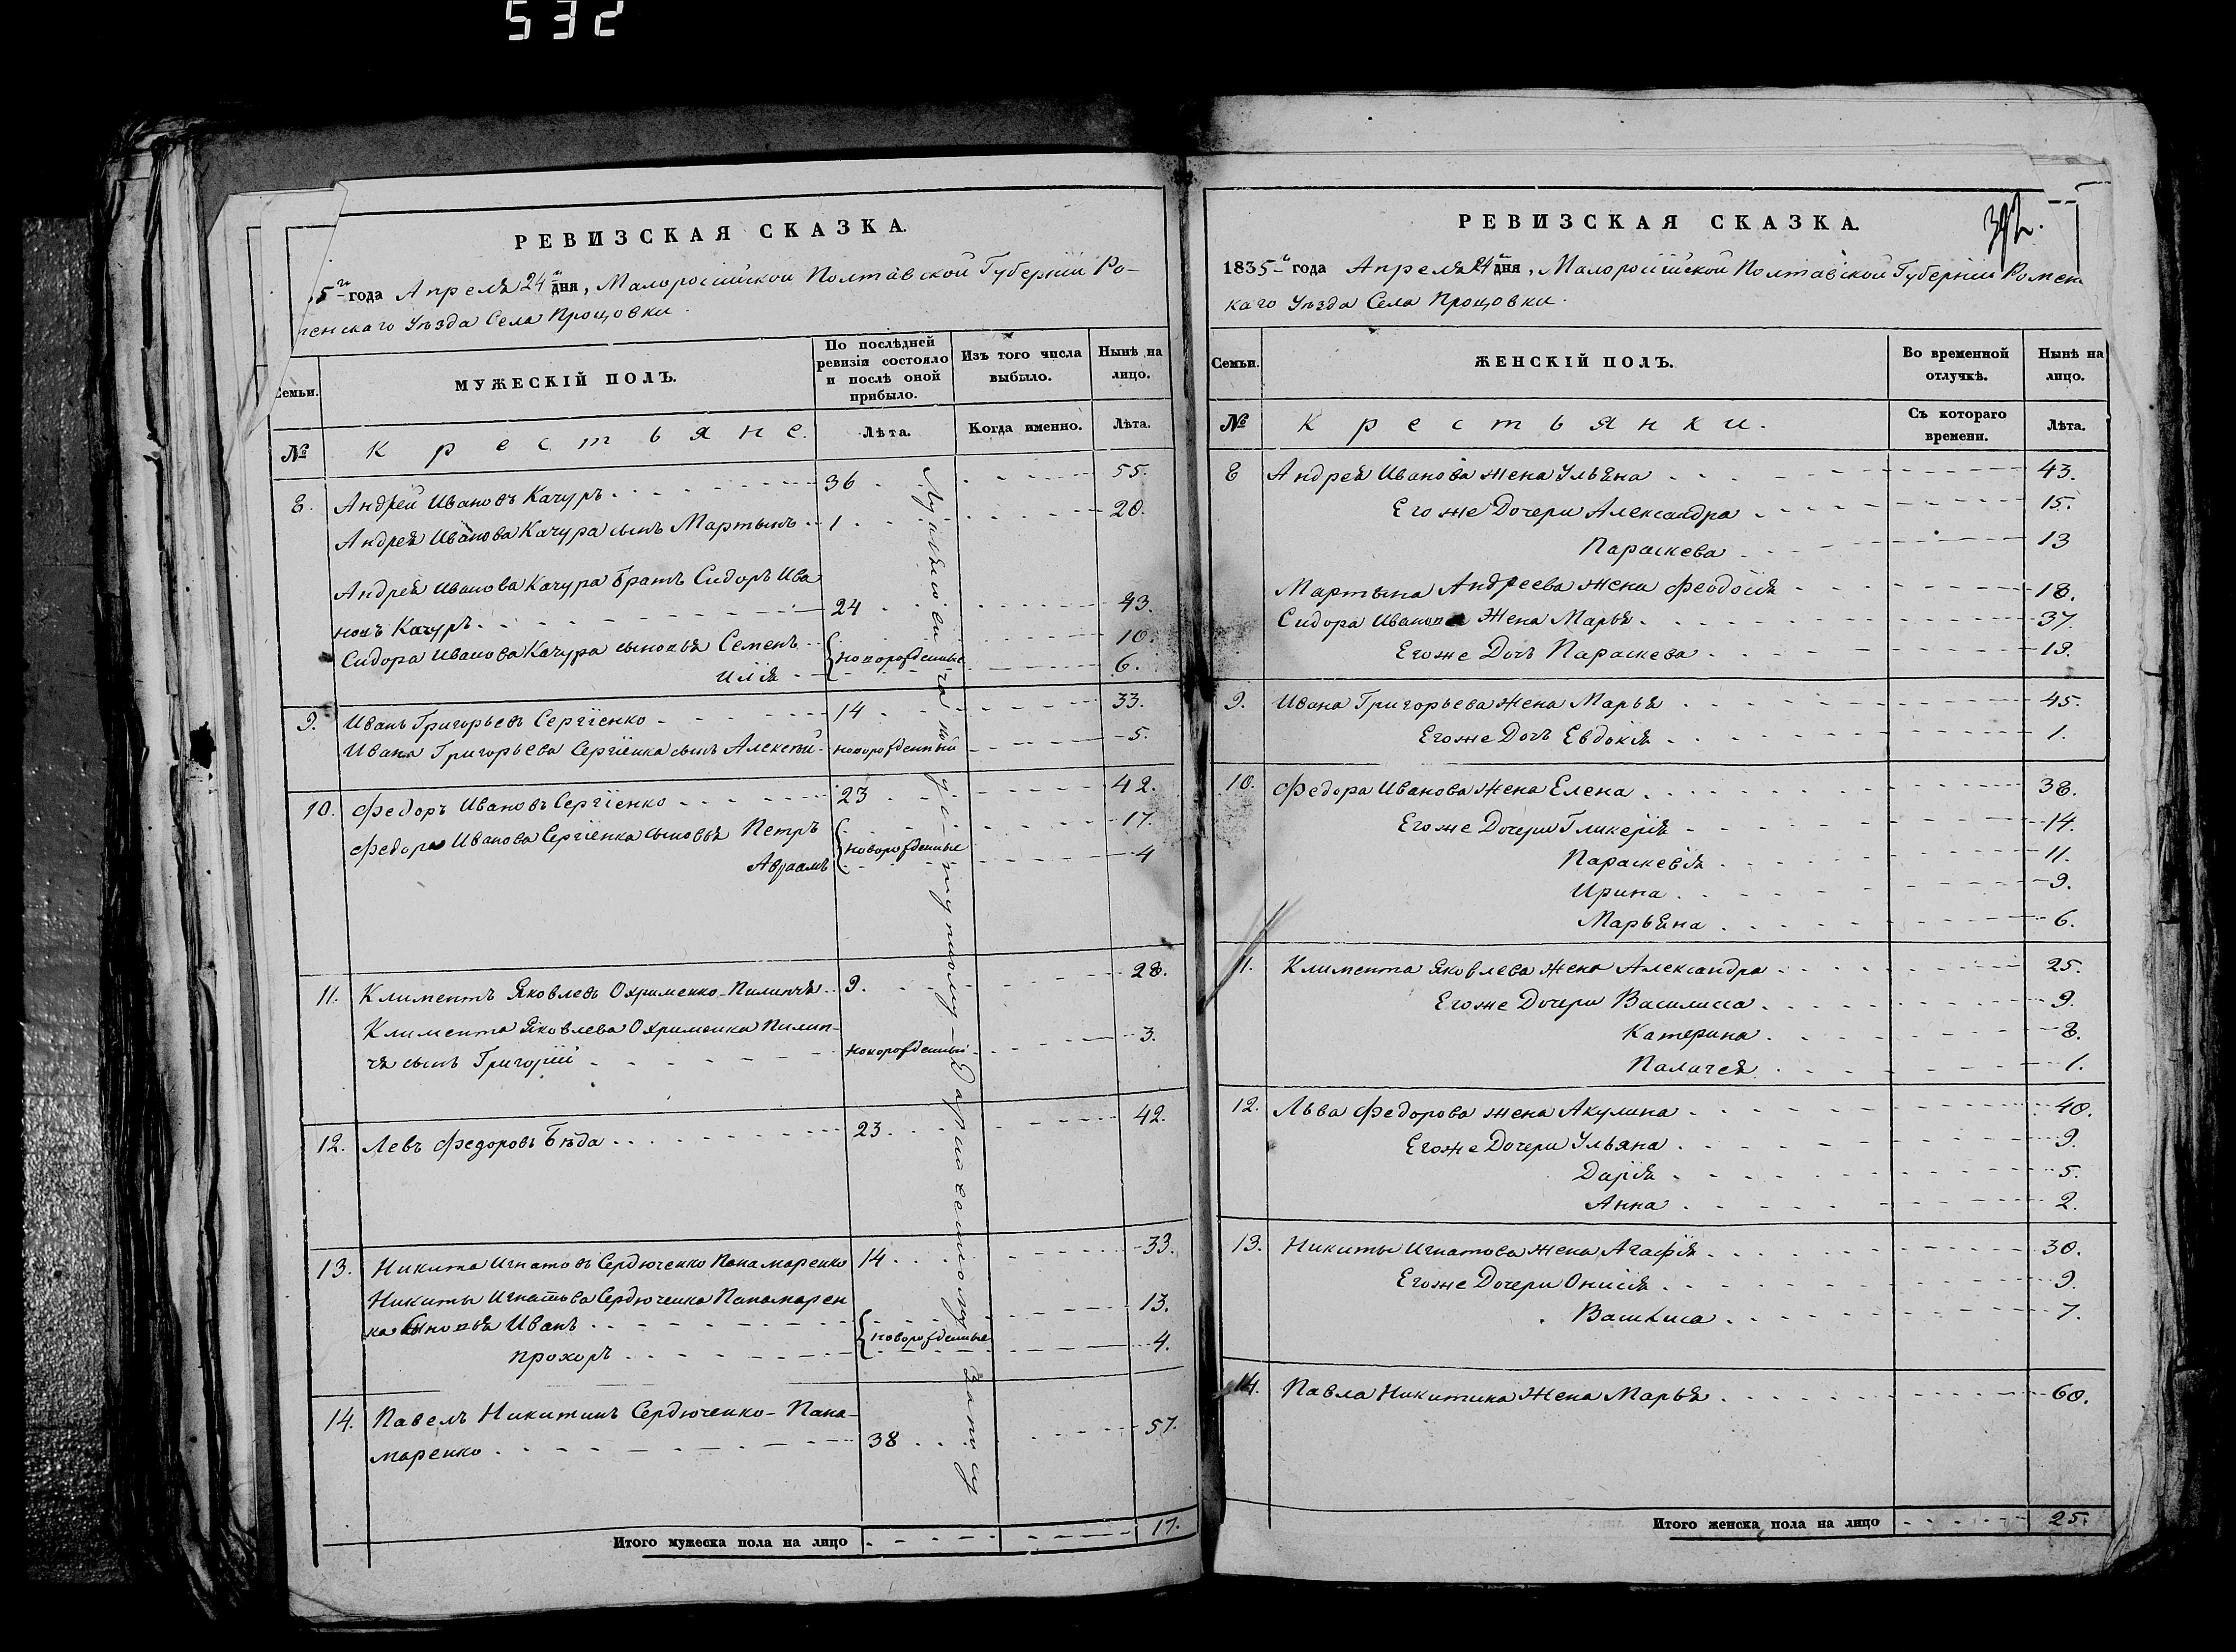 532
РЕВИЗСКАЯ СКАЗКА.
5-го года Апреля 24 дня, Малоросийской Полтавской Губернии Ро-
менскаго Уѣзда Села Прощовки.
Семьи.
МУЖЕСКІЙ ПОЛЪ.
По послѣдней ревизіи состояло и послѣ оной прибыло.
Изъ того числа выбыло.
Нынѣ на лицо.
№
Крестьяне.
Лѣта.
Когда именно.
Лѣта.
8. Андрей Ивановъ Качуръ 36 55.
Андрея Иванова Качура сынъ Мартынъ 1 20.
Андрея Иванова Качура братъ Сидоръ Ива
новъ Качуръ 24 43.
Сидора Иванова Качура сыновья Семенъ новорожденные 10.
Илія 6.
9. Иванъ Григорьевъ Сергіенко 14 33.
Ивана Григорьева Сергіенка сынъ Алексѣй новорожденный 5.
10. Федоръ Ивановъ Сергіенко 23 42.
Федора Иванова Сергіенка сыновья Петръ новорожденные 17.
Авраамъ 4
11. Климентъ Яковлевъ Охрименко-Пилипча 9. 28.
Климента Яковлева Охрименка Пилип-
ча сынъ Григорій новорожденный 3.
12. Левъ Федоровъ Бѣда 23. 42.
13. Никита Игнатовъ Сердюченко Панамаренко 14 33.
Никиты Игнатова Сердюченка Панамарен
ка сыновья Иванъ новорожденные 13.
Прохоръ 4.
14. Павелъ Никитинъ Сердюченко-Пана-
маренко 38 57.
Итого мужеска пола на лицо 17.
РЕВИЗСКАЯ СКАЗКА.
392.
1835-го года Апреля 24 дня, Малоросійской Полтавской Губерніи Ромен
каго Уѣзда Села Прощовки.
Семьи.
ЖЕНСКІЙ ПОЛЪ.
Во временной отлучкѣ.
Нынѣ на лицо.
№
Крестьянки.
Съ котораго времени.
Лѣта.
8 Андрея Иванова жена Ульяна 43.
Егоже Дочери Александра 15.
Параскева 13
Мартына Андреева жена Феодосія 18.
Сидора Иванова Жена Марья 37.
Егоже Дочь Параскева 19.
9. Ивана Григорьева жена Марья 45.
Егоже Дочь Евдокія 1.
10. Федора Иванова жена Елена 38.
Егоже Дочери Гликерія 14.
Параскевія 11.
Ирина 9.
Марьяна 6.
11. Климента Яковлева жена Александра 25.
Егоже Дочери Василиса 9.
Катерина 8.
Палагея 1.
12. Льва Федорова жена Акулина 40.
Егоже Дочери Ульяна 9.
Дарія 5.
Анна 2.
13. Никиты Игнатова жена Агафія 30.
Егоже Дочери Онисія 9.
Василиса 7.
14. Павла Никитина Жена Марья 60.
Итого женска пола на лицо 25.